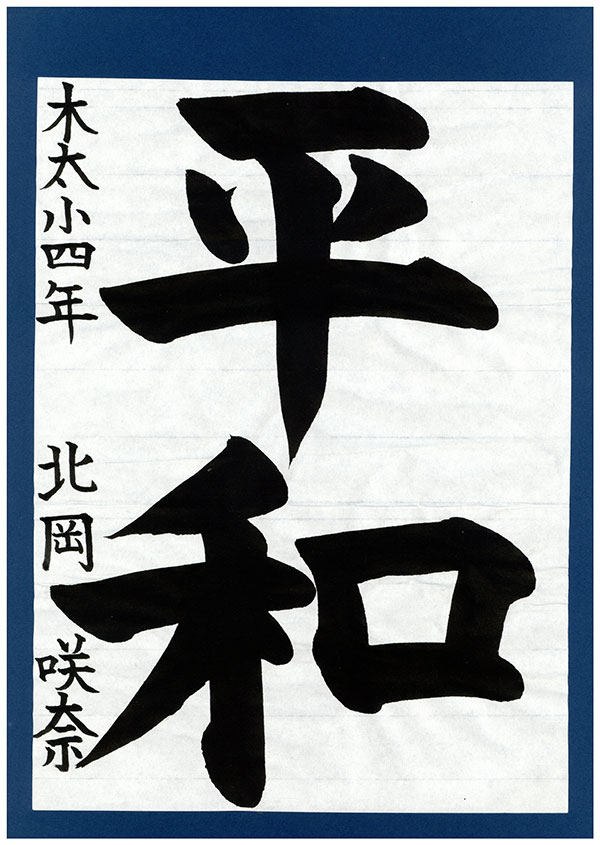 平和
木太小四年 北岡 咲奈